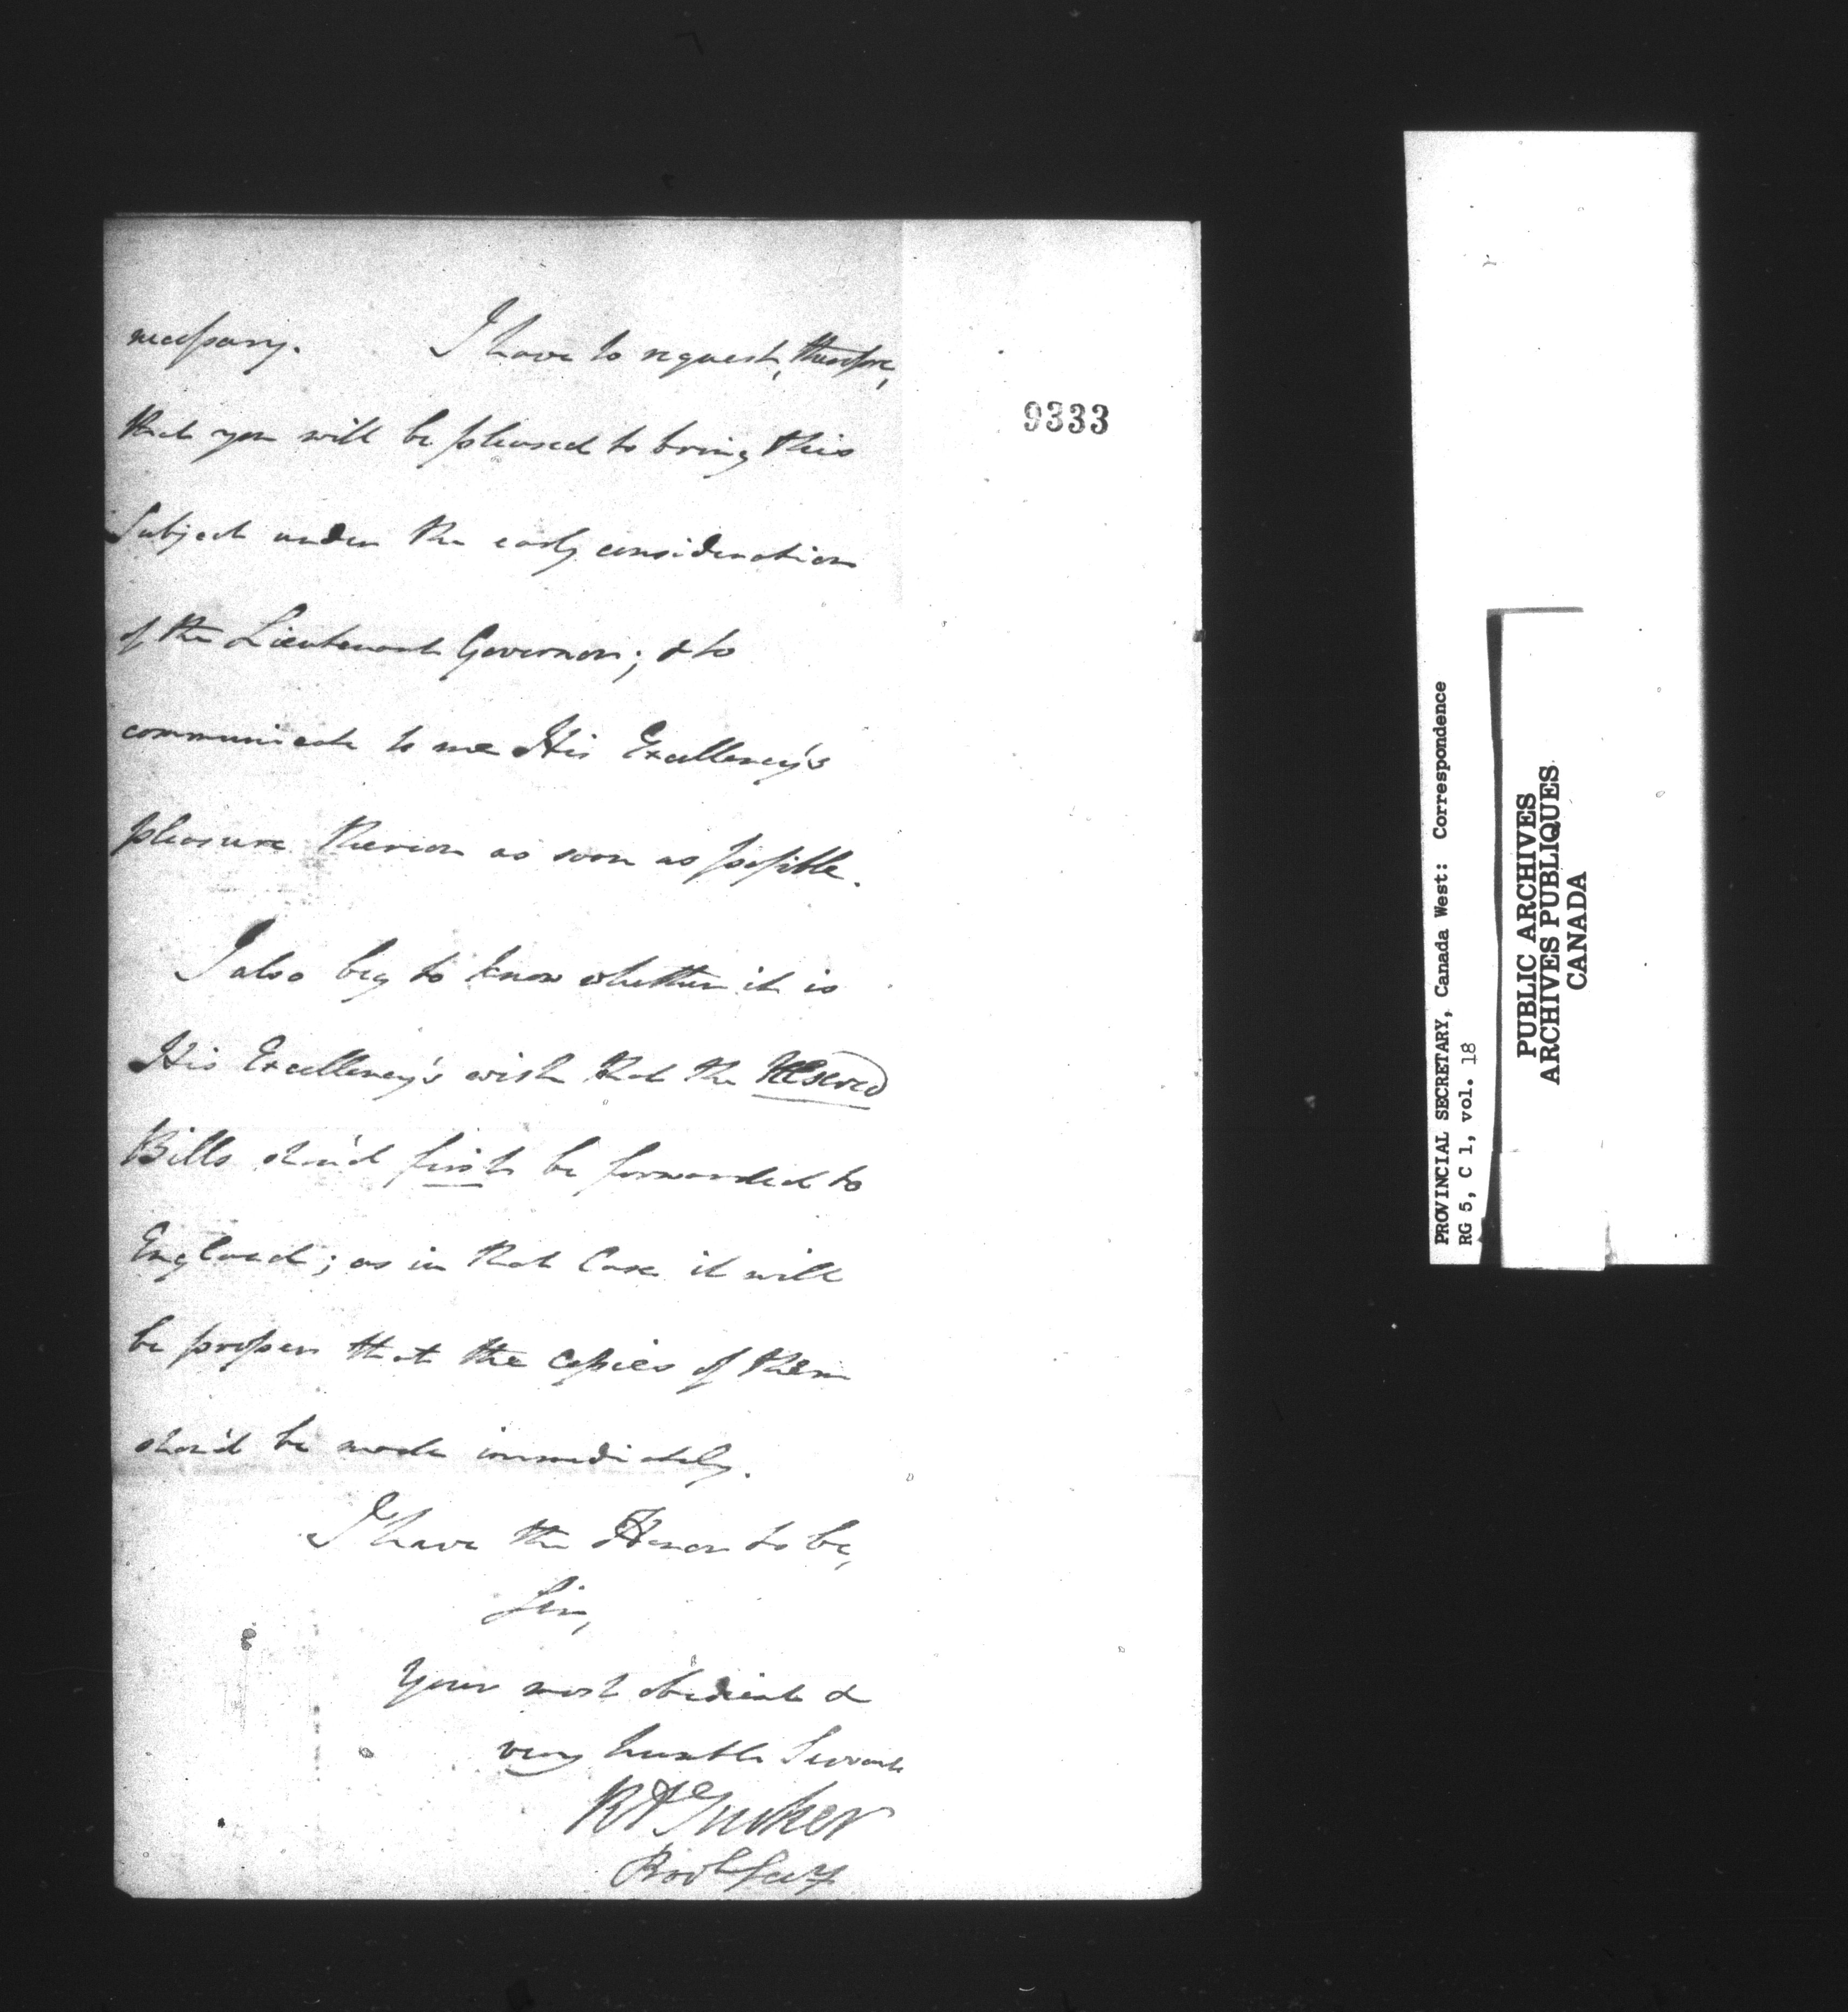 necessary. I have to request, therefore,
that you will be pleased to bring this
Subject under the early consideration
of the Lieutenant Governor; & to
communicate to me His Excellency's
pleasure thereon as soon as possible.
I also beg to know whether it is
His Excellency's wish that the Reserved
Bills shou'd first be forwarded to
England; as in that Case it will
be proper that the copies of them
shou'd be made immediately.
I have the Honor to be,
Sir,
Your most obedient &
very humble Servant
R A Tucker
Provl Secy
9333
PROVINCIAL SECRETARY, Canada West: Correspondence
RG 5, C 1, vol. 18
PUBLIC ARCHIVES
ARCHIVES PUBLIQUES
CANADA